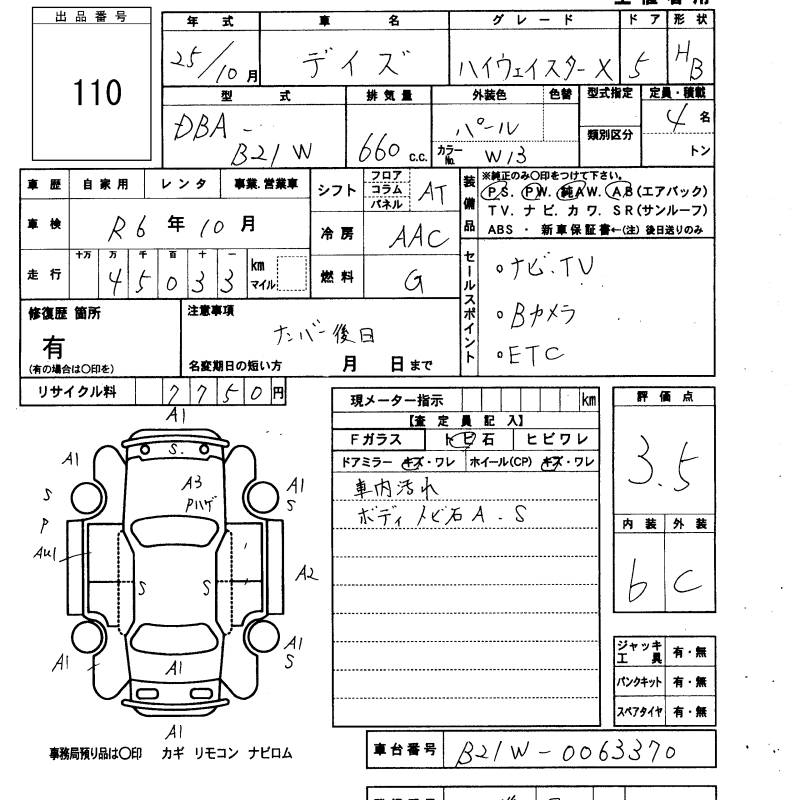 出品番号
110
年式 車名 グレード ドア 形状
25/10月 デイズ ハイウェイスターX 5 HB
型式 排気量 外装色 色替 型式指定 定員・積載
DBA - B21W 660 c.c. パール 類別区分 4名
カラーNo. W13 トン
車歴 自家用 レンタ 事業.営業車
車検 R6年10月
走行 十万 万 千 百 十 一 km
45033 マイル
シフト フロア コラム パネル AT
冷房 AAC
燃料 G
装備品 ※純正のみ○印をつけて下さい。
PS. PW. 純AW. AB(エアバック)
TV. ナビ. カワ. SR(サンルーフ)
ABS ・ 新車保証書←(注) 後日送りのみ
セールスポイント
○ナビ.TV
○Bカメラ
○ETC
修復歴 箇所
有
(有の場合は○印を)
注意事項
ナンバー後日
名変期日の短い方 月 日まで
リサイクル料 7750円
現メーター指示 km
【査定員記入】
Fガラス トビ石 ヒビワレ
ドアミラー キズ・ワレ ホイール(CP) キズ・ワレ
車内汚れ
ボディトビ石A.S
評価点
3.5
内装 外装
b C
ジャッキ工具 有・無
パンクキット 有・無
スペアタイヤ 有・無
A1
S.
A1
A3
Pハゲ
A1
S
S
P
AU1
S
S
A2
A1
A1
S
A1
A1
事務局預り品は○印 カギ リモコン ナビロム
車台番号 B21W-0063370